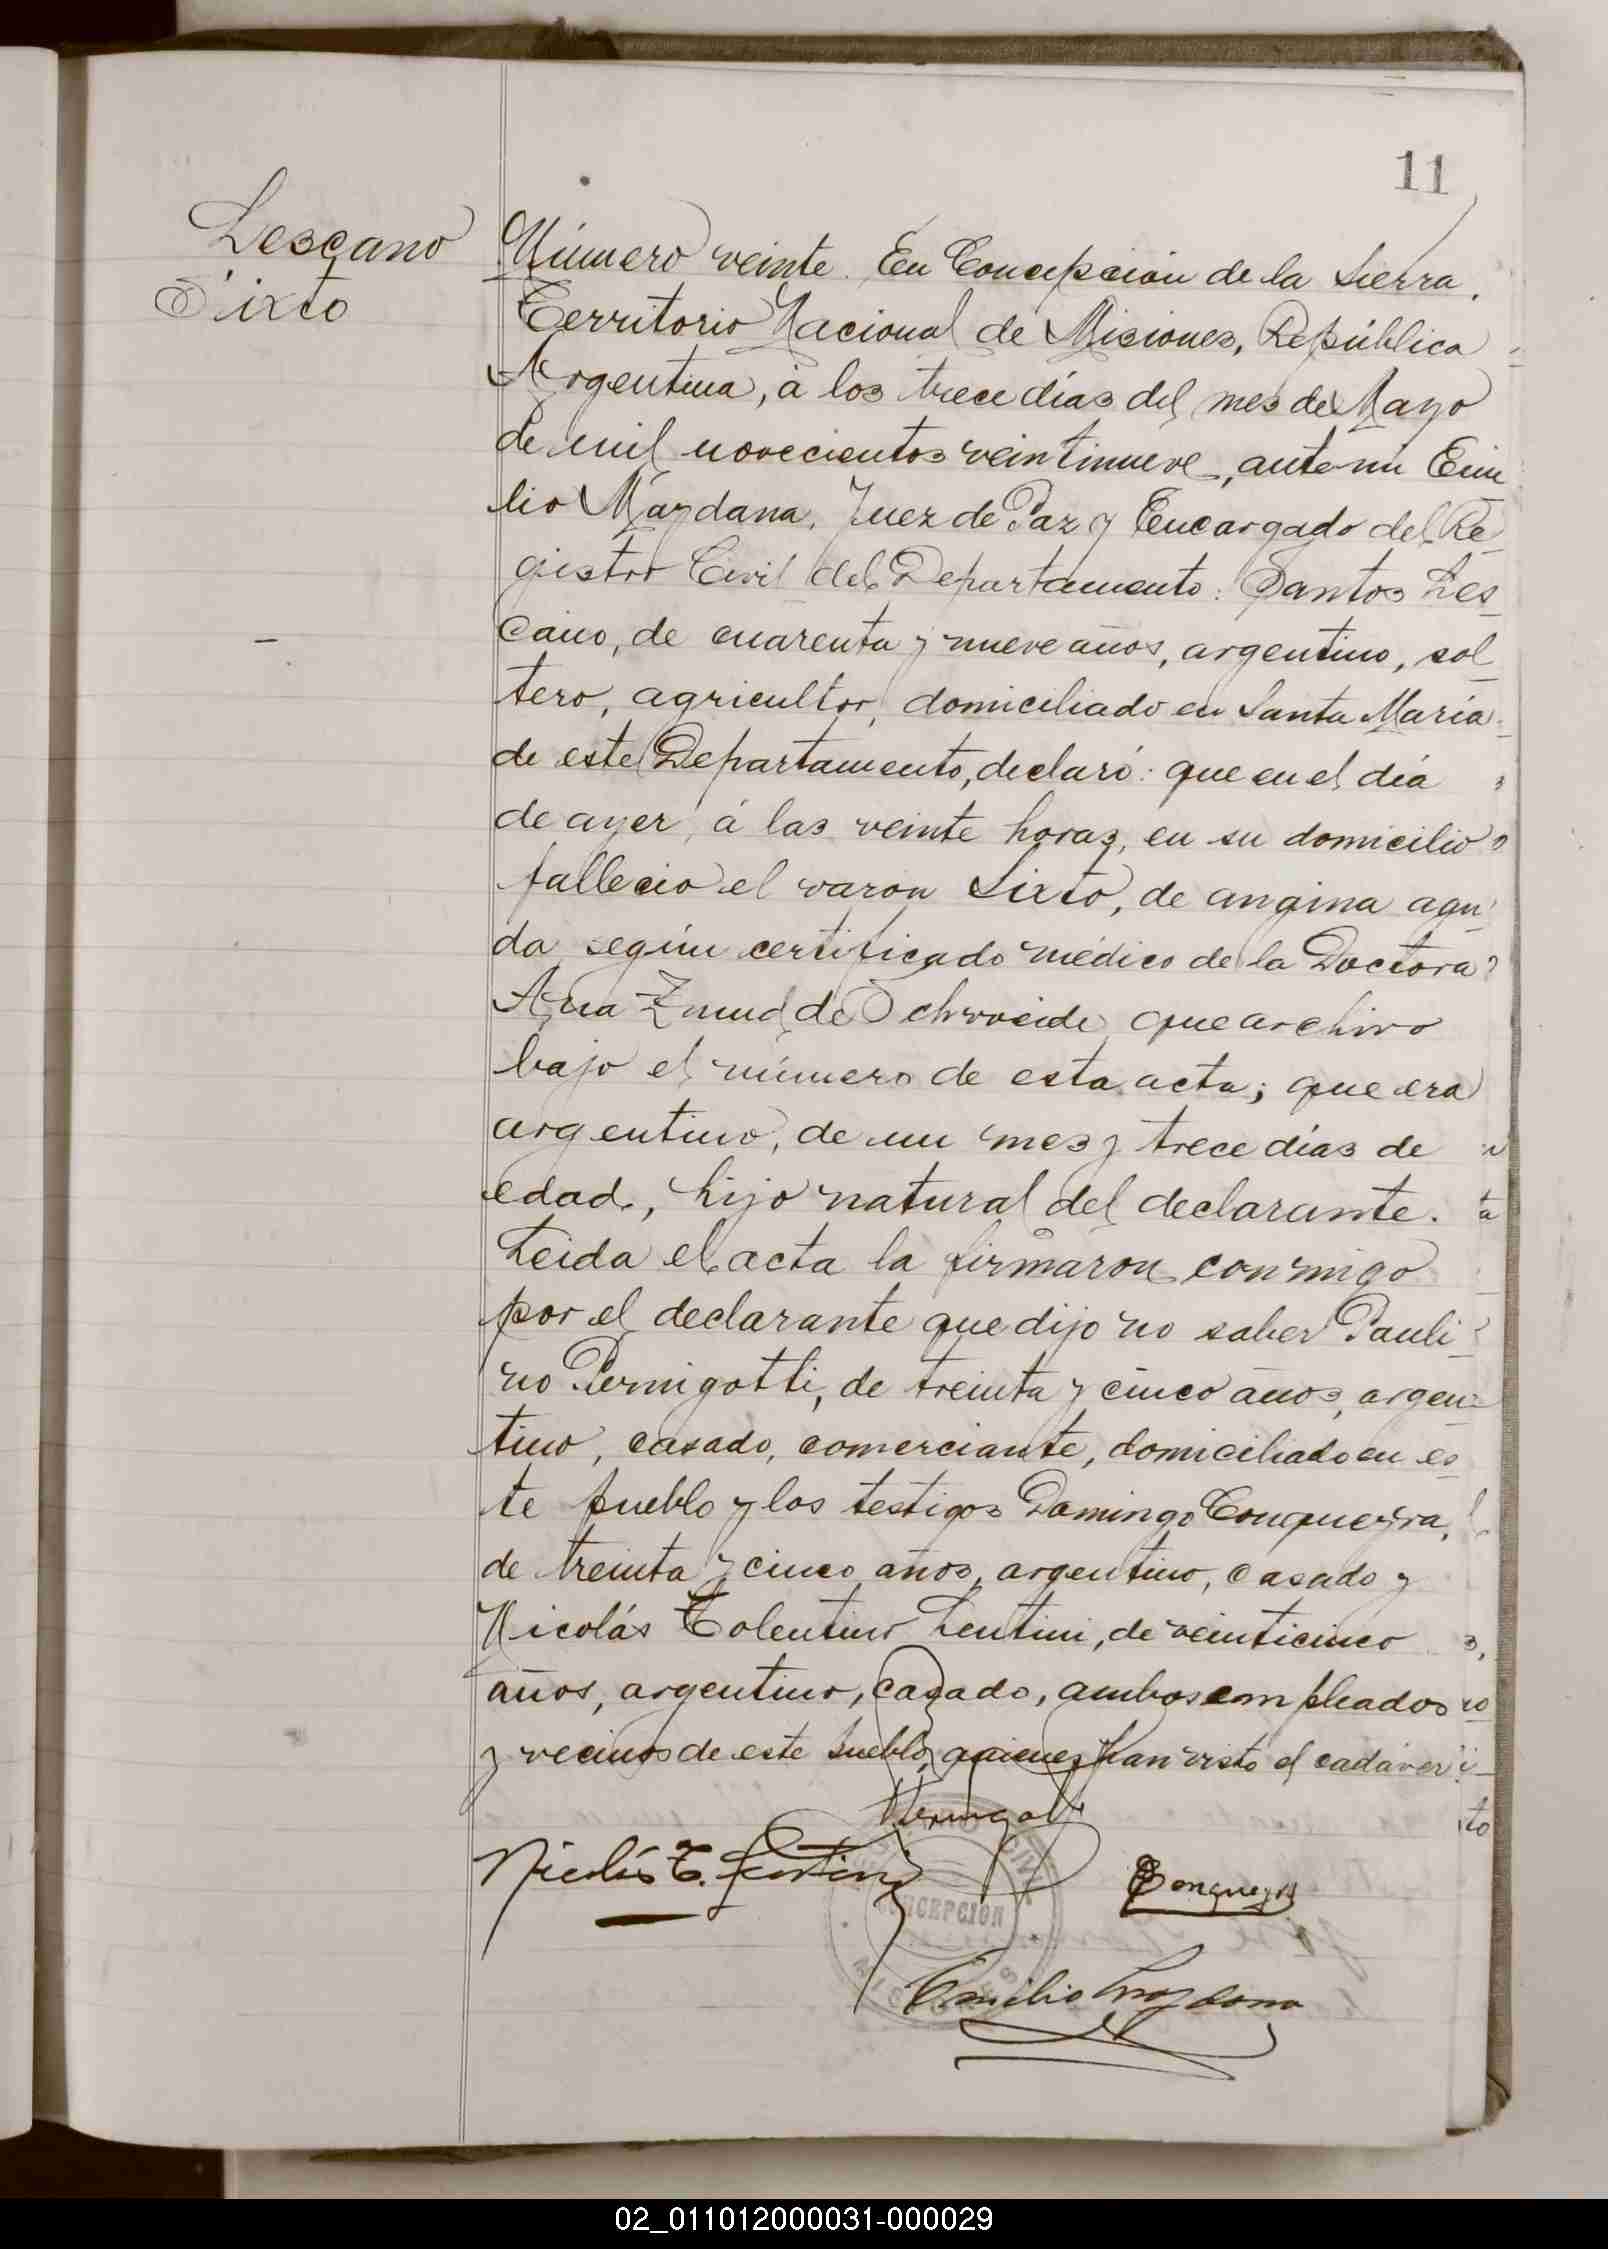 11
Lescano
Sixto
Número veinte. En Concepción de la Sierra,
Territorio Nacional de Misiones, República
Argentina, á los trece días del mes de Mayo
de mil novecientos veintinueve, ante mi Emi
lio Maydana, Juez de Paz y Encargado del Re-
gistro Civil del Departamento: Santos Les-
cano, de cuarenta y nueve años, argentino, sol-
tero, agricultor, domiciliado en Santa María
de este Departamento, declaró: que en el día
de ayer, á las veinte horas, en su domicilio
falleció el varon Sixto, de angina agu
da según certificado médico de la Doctora
Ana Zmud de que archivo
bajo el número de esta acta; que era
argentino, de un mes y trece días de
edad, hijo natural del declarante.
Leida el acta la firmaron conmigo
por el declarante que dijo no saber Pauli
no Pernigotti, de treinta y cinco años, argen-
tino, casado, comerciante, domiciliado en es-
te pueblo y los testigos Domingo Conqueyra,
de treinta y cinco años, argentino, casado y
Nicolás Tolentino Lentini, de veinticinco
años, argentino, casado, ambos empleados
y vecinos de este pueblo, quienes han visto el cadáver
Nicolás T. Lentini
Conqueyra
CONCEPCION
Emilio Maydana
02_011012000031-000029